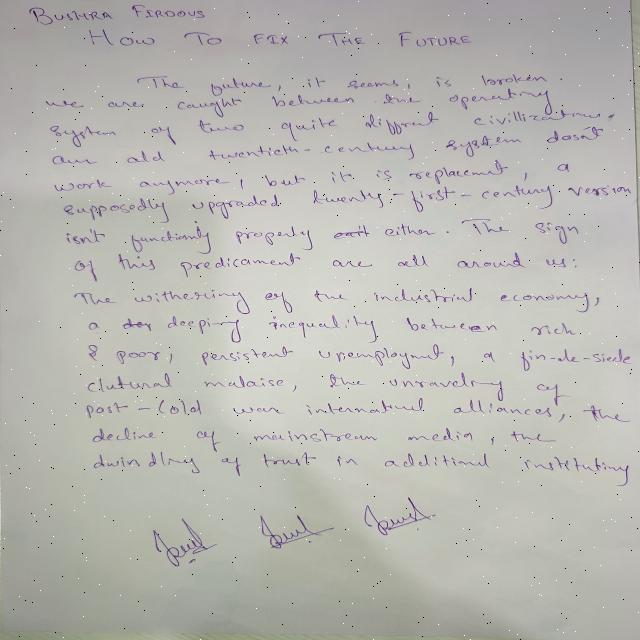 BUSHRA FIRDOUS
HOW TO FIX THE FUTURE
The future, it seems, is broken.
we are caught between the operating
system of two quite diffrent civillizations.
our old twentieth-century system dosn't
work anymore, but it is replacement, a
supposedly upgraded twenty-first-century version
isn't functionly properly either. The sign
of this predicament are all around us:
The withering of the industrial economy,
a deeping inequality between rich
& poor, persistent unemployment, a fin-de-siecle
clutural malaise, the unraveling of
post-Cold war international alliances, the
decline of mainstream media, the
dwindling of trust in additional